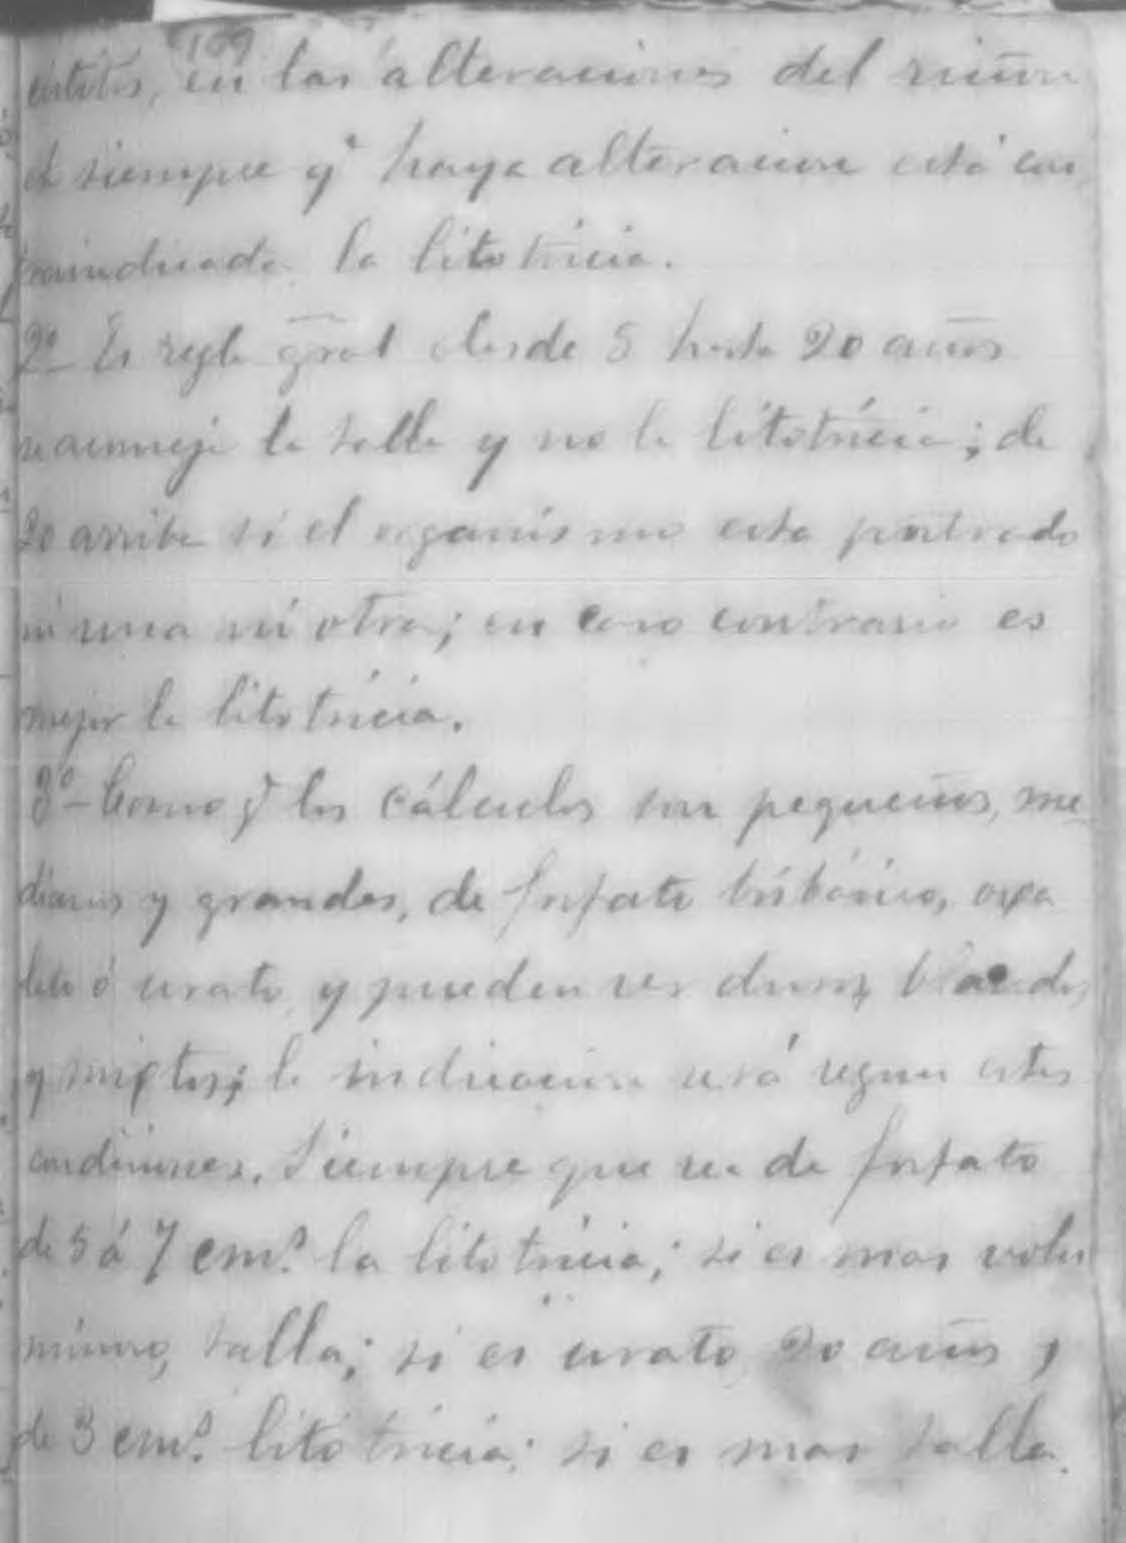 109
cistitis, en las alteraciones del riñon
siempre q.e haya alteracion está con
traindicada la litotricia.
2º- Es regla gral desde 5 hasta 20 años
se aconseja la talla y no la litotricia; de
20 arriba si el organismo esta postrado
ni una ni otra; en caso contrario es
mejor la litotricia.
3º- Como q.e los cálculos son pequeños, me
dianos y grandes, de fosfato tribásico, oxa
lato ó urato, y pueden ser duros, blandos,
y mixtos; la indicacion será segun estas
condiciones. Siempre que sea de fosfato
de 5 á 7 cm.s la litotricia; si es mas volu
minoso, talla; si es urato 20 años,
de 3 cm.s litotricia; si es mas talla.